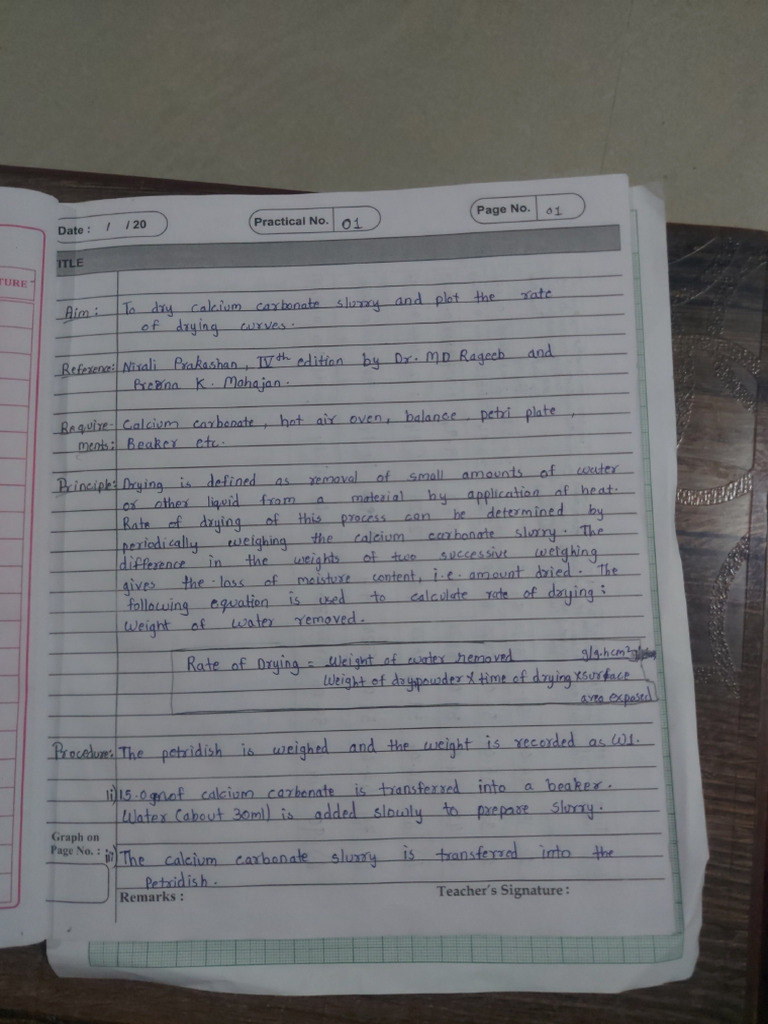 Date : / / 20
Practical No. 01
Page No. 01
ITLE
TURE
Aim : To dry calcium carbonate slurry and plot the rate
of drying curves.
Reference: Nirali Prakashan, IVth edition by Dr. MD Rageeb and
K. Mahajan.
Require- Calcium carbonate, hot air oven, balance, petri plate,
ments: Beaker etc.
Principle: Drying is defined as removal of small amounts of water
or other liquid from a material by application of heat.
Rate of drying of this process can be determined by
periodically weighing the calcium carbonate slurry. The
difference in the weights of two successive weighing
gives the loss of moisture content, i.e. amount dried. The
following equation is used to calculate rate of drying :
Weight of water removed.
Rate of Drying = Weight of water removed g/g.hcm²
Weight of dry powder x time of drying x surface
area exposed
Procedure: The petridish is weighed and the weight is recorded as W1.
ii) 15.0 gm of calcium carbonate is transferred into a beaker.
Water (about 30ml) is added slowly to prepare slurry.
Graph on
Page No. : iii) The calcium carbonate slurry is transferred into the
Petridish.
Remarks :
Teacher's Signature :